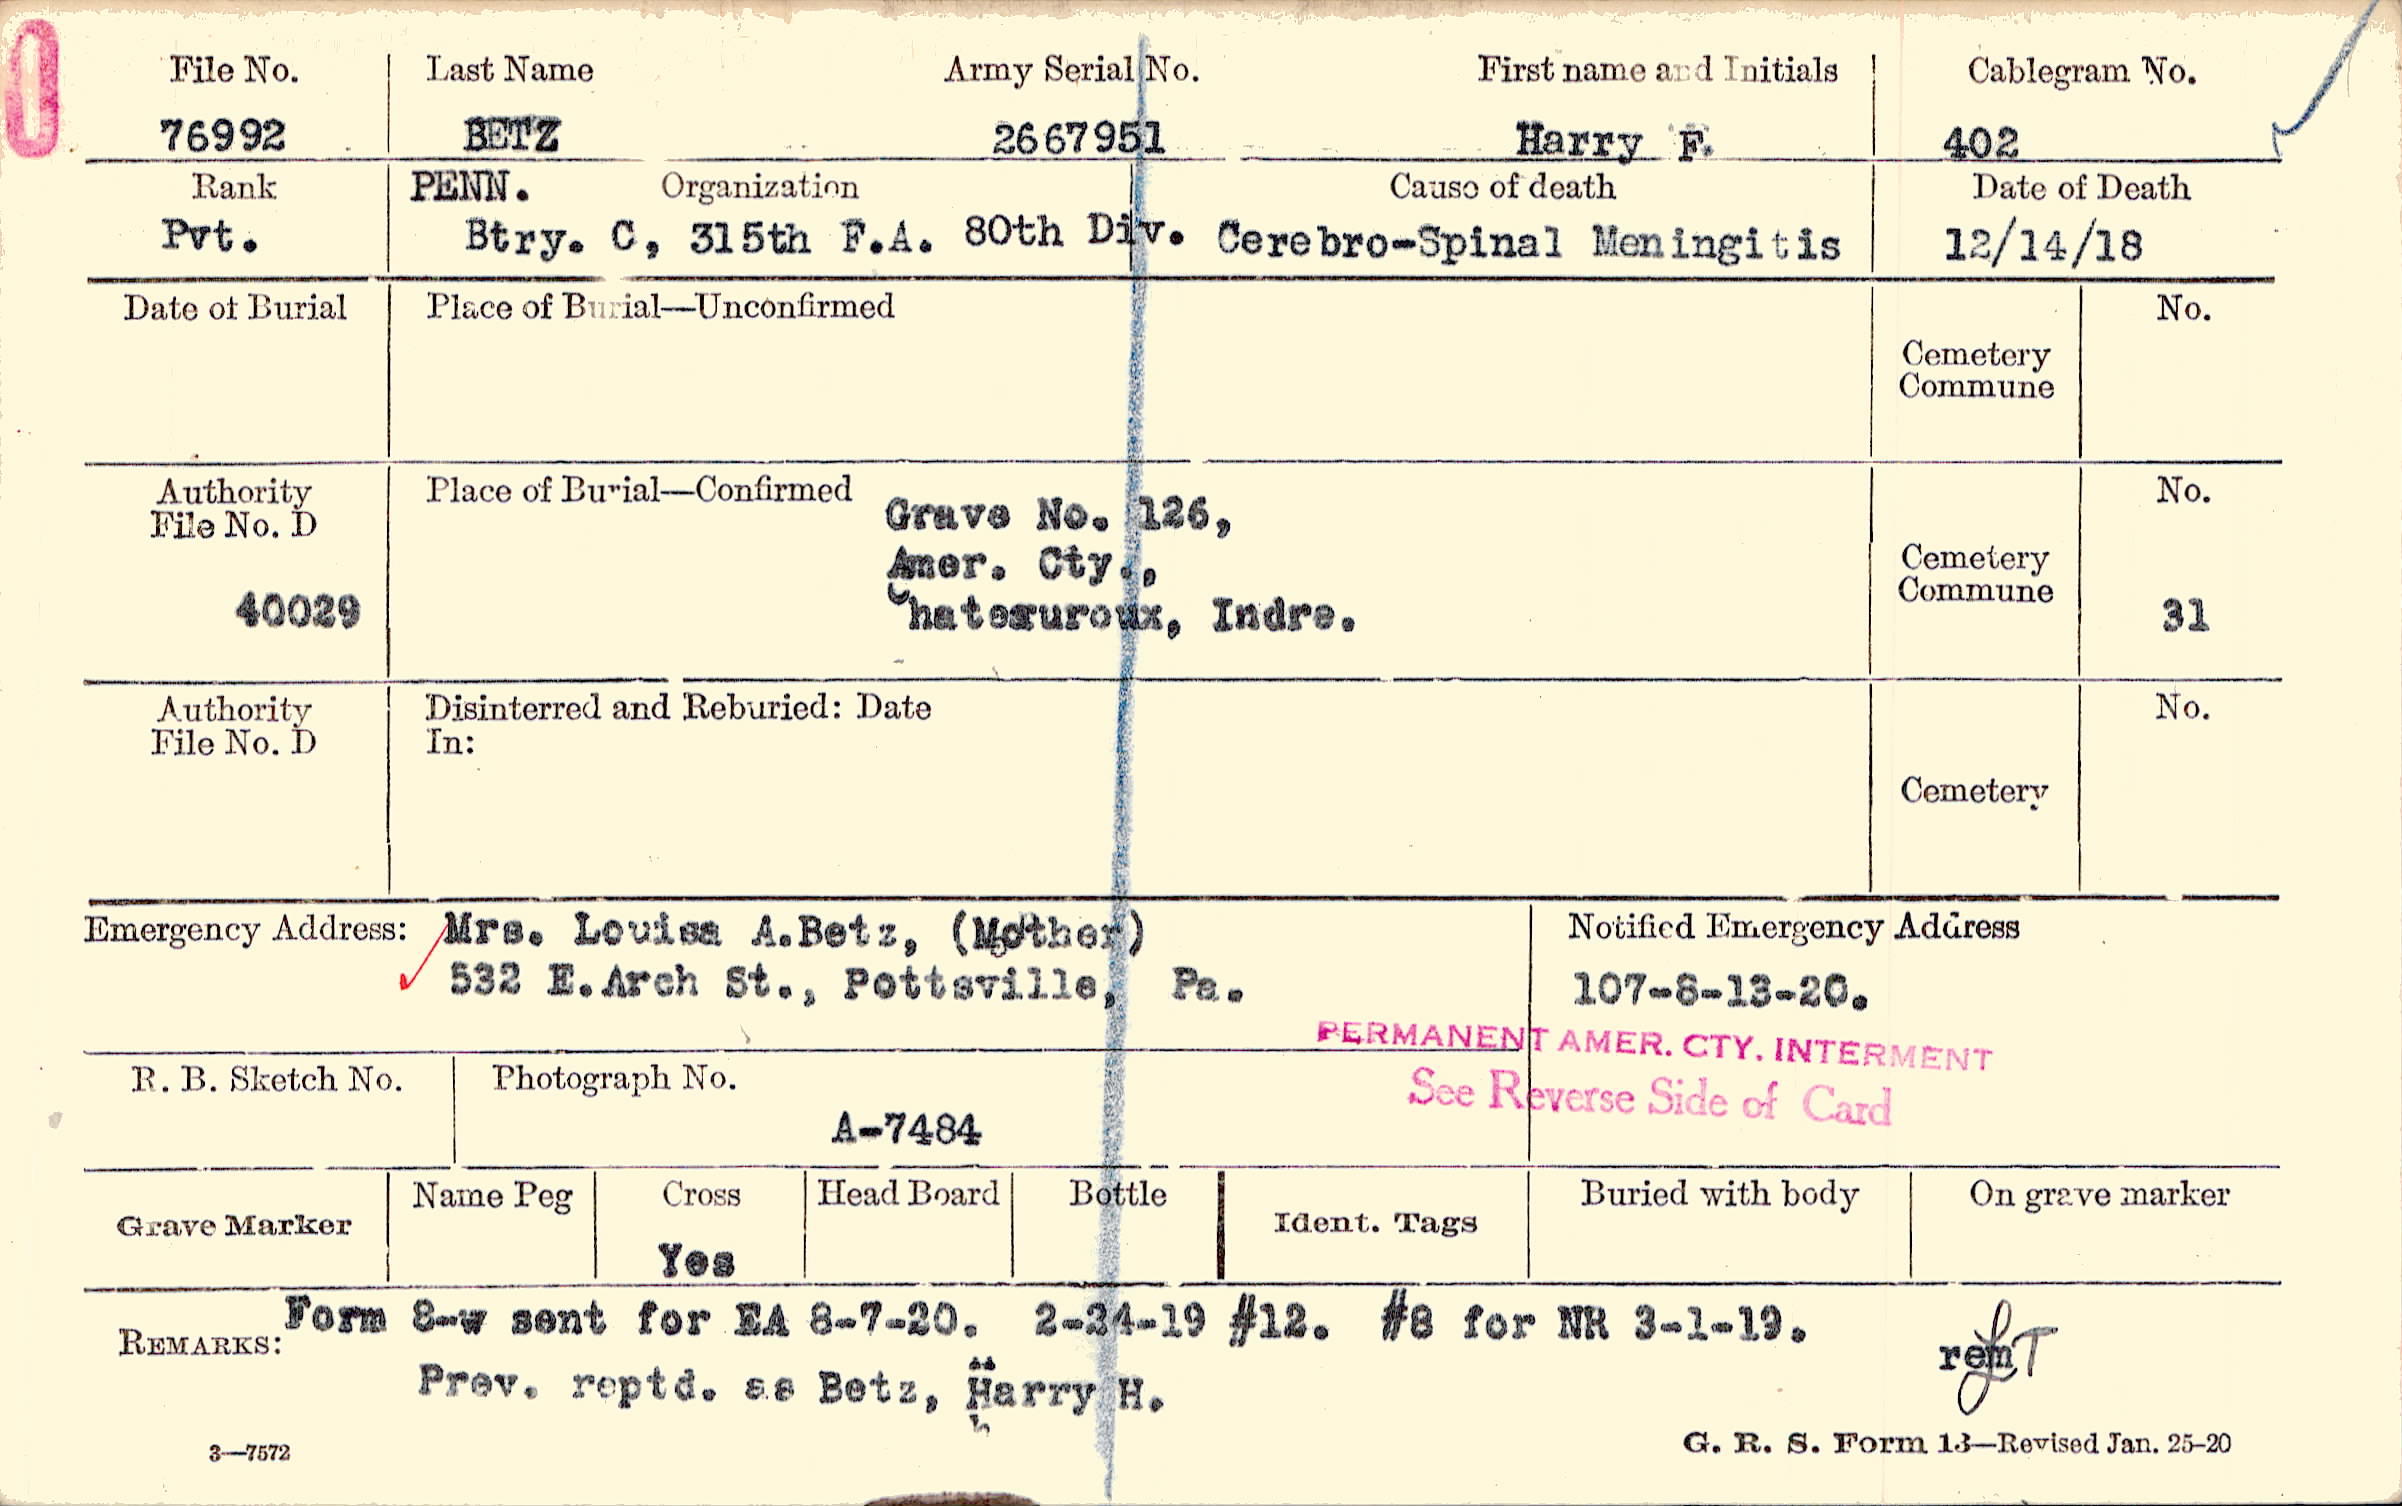 0
File No. Last Name Army Serial No. First name and Initials Cablegram No.
76992 BETZ 2667951 Harry F. 402
Rank PENN. Organization Cause of death Date of Death
Pvt. Btry. C, 315th F.A. 80th Div. Cerebro-Spinal Meningitis 12/14/18
Date of Burial Place of Burial—Unconfirmed No.
Cemetery
Commune
Authority Place of Burial—Confirmed No.
File No. D Grave No. 126,
Amer. Cty., Cemetery
40029 Chateauroux, Indre. Commune 31
Authority Disinterred and Reburied: Date No.
File No. D In:
Cemetery
Emergency Address: Mrs. Louisa A.Betz, (Mother) Notified Emergency Address
532 E.Arch St., Pottsville, Pa. 107-8-13-20.
PERMANENT AMER. CTY. INTERMENT
R. B. Sketch No. Photograph No. See Reverse Side of Card
A-7484
Grave Marker Name Peg Cross Head Board Bottle Ident. Tags Buried with body On grave marker
Yes
REMARKS: Form 8-w sent for EA 8-7-20. 2-24-19 #12. #8 for NR 3-1-19.
Prev. reptd. as Betz, Harry H.
3—7572 G. R. S. Form 13—Revised Jan. 25-20